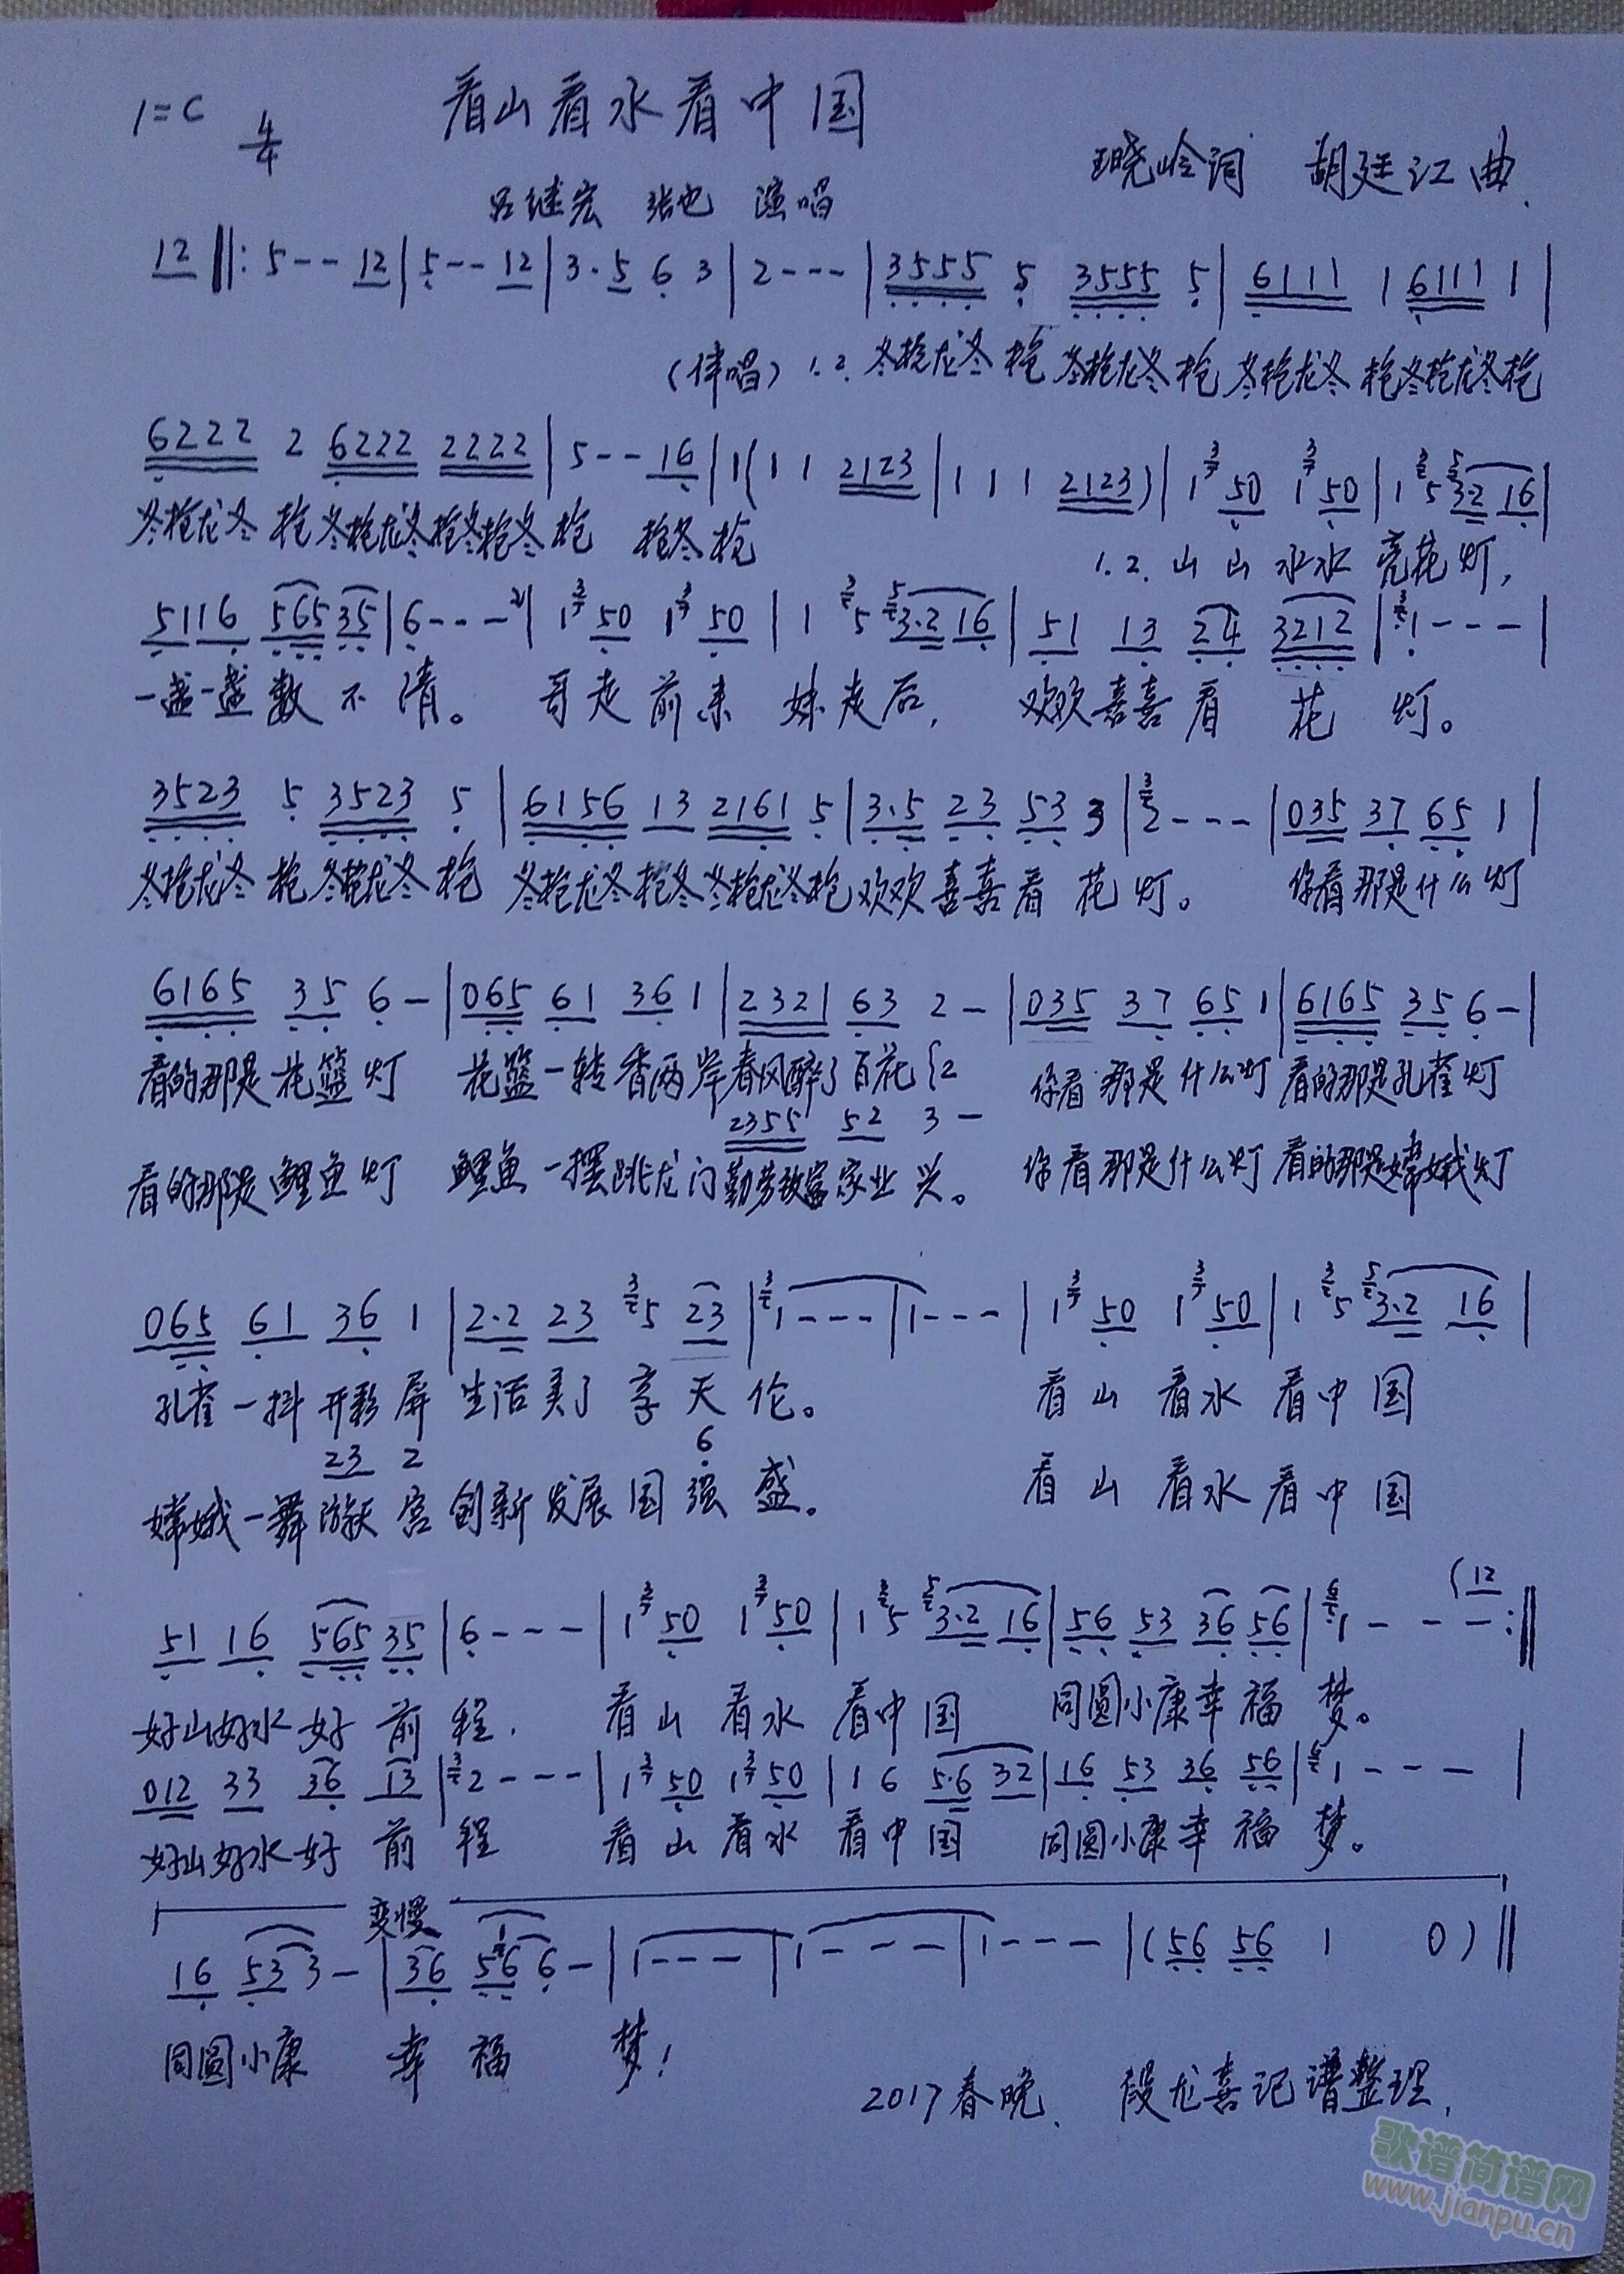 1=C 4/4 看山看水看中国
王晓岭词 胡廷江曲
吕继宏 张也 演唱
12 ‖: 5 - - 12 | 5 - - 12 | 3 · 5 6 3 | 2 - - - | 3555 5 3555 5 | 6111 1 6111 1 |
(伴唱) 1.2. 冬抢龙冬 抢 冬抢龙冬 抢 冬抢龙冬 抢 冬抢龙冬 抢
6222 2 6222 2222 | 5 - - 16 | 1 ( 1 1 2123 | 1 1 1 2123 ) | 1 50 1 50 | 1 5 3·2 16 |
冬抢龙冬 抢 冬抢龙冬 抢冬抢冬 抢 抢冬 抢
1.2. 山 山 水水 亮花 灯,
5116 565 35 | 6 - - - | 1 50 1 50 | 1 5 3·2 16 | 51 13 24 3212 | 1 - - - |
一盏一盏 数 不 清。 哥 走 前 来 妹 走 后, 欢欢喜喜 看 花 灯。
3523 5 3523 5 | 6156 13 2161 5 | 3·5 23 53 3 | 2 - - - | 035 37 65 1 |
冬抢龙冬 抢 冬抢龙冬 抢 冬抢龙冬 抢冬 冬抢龙冬 抢 欢欢 喜喜 看 花 灯。 你看那是什么灯
6165 35 6 - | 065 61 36 1 | 2321 63 2 - | 035 37 65 1 | 6165 35 6 - |
看的那是花篮灯 花篮一转香两岸 春风醉了百花 你看那是什么灯 看的那是孔雀灯
2355 52 3 -
看的那是鲤鱼灯 鲤鱼一摆跳龙门 勤劳致富家业兴。 你看那是什么灯 看的那是嫦娥灯
065 61 36 1 | 2·2 23 5 23 | 1 - - - | 1 - - - | 1 50 1 50 | 1 5 3·2 16 |
孔雀一抖开彩屏 生活美了 享 天 伦。 看 山 看水 看中 国
23 2 6
嫦娥一舞游天宫 创新发展国 强 盛。 看 山 看水 看中 国
51 16 565 35 | 6 - - - | 1 50 1 50 | 1 5 3·2 16 | 56 53 36 56 | 1 - - - (12 :‖
好山好水 好 前 程. 看 山 看水 看中 国 同圆小康幸 福 梦。
012 33 36 13 | 2 - - - | 1 50 1 50 | 1 6 5·6 32 | 16 53 36 56 | 1 - - - |
好山好水好 前 程 看 山 看水 看中 国 同圆小康幸 福 梦。
变慢
16 53 3 - | 36 56 6 - | 1 - - - | 1 - - - | 1 - - - | (56 56 1 0) ‖
同圆小康 幸 福 梦!
2017春晚、 段龙喜记谱整理.
歌谱简谱网
www.jianpu.cn